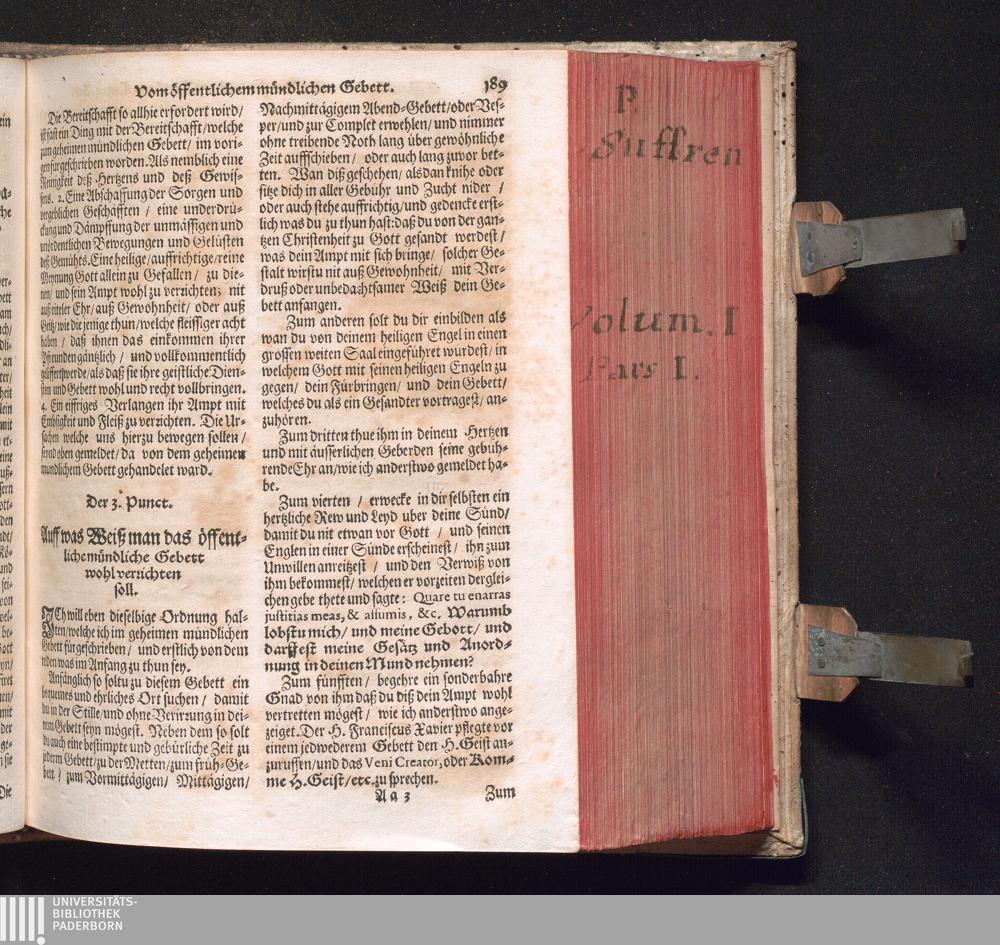 Vom öffentlichem mündlichen Gebett.
189
Die Bereitschafft so allhie erfordert wird/
ist fast ein Ding mit der Bereitschafft/welche
zum geheimen mündlichen Gebett/ im vori-
gen fürgeschrieben worden. Als nemblich eine
Reinigkeit deß Hertzens und deß Gewis-
sens. 2. Eine Abschaffung der Sorgen und
vergeblichen Geschäfften / eine underdrü-
ckung und Dämpffung der unmässigen und
unördentlichen Bewegungen und Gelüsten
deß Gemühts. Eine heilige/auffrichtige/reine
Meynung Gott allein zu Gefallen / zu die-
nen/ und sein Ampt wohl zu verzichten; nit
auß eiteler Ehr/auß Gewohnheit/ oder auß
Geitz/wie die jenige thun/welche fleissiger acht
haben / daß ihnen das einkommen ihrer
Pfreunden gäntzlich / und vollkommentlich
geliffert werde/als daß sie ihre geistliche Dien-
sten und Gebett wohl und recht vollbringen.
4. Ein eiffriges Verlangen ihr Ampt mit
Embsigkeit und Fleiß zu verzichten. Die Ur-
sachen welche uns hierzu bewegen sollen /
seynd oben gemeldet/ da von dem geheimen
mündlichem Gebett gehandelet ward.
Der 3. Punct.
Auff was Weiß man das öffent-
liche mündliche Gebett
wohl verzichten
soll.
ICh will eben dieselbige Ordnung hal-
ten/welche ich im geheimen mündlichen
Gebett fürgeschrieben/ und erstlich von dem
reden was im Anfang zu thun sey.
Anfänglich so soltu zu diesem Gebett ein
bequemes und ehrliches Ort suchen / damit
du in der Stille/und ohne Verirzung in dei-
nem Gebett seyn mögest. Neben dem so solt
du auch eine bestimpte und gebürliche Zeit zu
jederm Gebett/zu der Metten/zum früh-Ge-
bett / zum Vormittägigen/ Mittägigen/
Nachmittägigem Abend-Gebett/oder Ves-
per/und zur Complet erwehlen/ und nimmer
ohne treibende Noth lang über gewöhnliche
Zeit auffschieben/ oder auch lang zuvor bet-
ten. Wan diß geschehen/ als dan knihe oder
sitze dich in aller Gebühr und Zucht nider /
oder auch stehe auffrichtig/und gedencke erst-
lich was du zu thun hast: daß du von der gan-
tzen Christenheit zu Gott gesandt werdest/
was dein Ampt mit sich bringe/ solcher Ge-
stalt wirstu nit auß Gewohnheit/ mit Ver-
druß oder unbedachtsamer Weiß dein Ge-
bett anfangen.
Zum anderen solt du dir einbilden als
wan du von deinem heiligen Engel in einen
grossen weiten Saal eingeführet wurdest/ in
welchem Gott mit seinen heiligen Engeln zu
gegen/ dein Fürbringen/ und dein Gebett/
welches du als ein Gesandter vortragest/ an-
zuhören.
Zum dritten thue ihm in deinem Hertzen
und mit äusserlichen Geberden seine gebüh-
rende Ehr an/wie ich anderstwo gemeldet ha-
be.
Zum vierten / erwecke in dir selbsten ein
hertzliche Rew und Leyd uber deine Sünd/
damit du nit etwan vor Gott / und seinen
Englen in einer Sünde erscheinest/ ihn zum
Unwillen anreitzest/ und den Verwiß von
ihm bekommest/ welchen er vorzeiten derglei-
chen gebe thete und sagte: Quare tu enarras
justitias meas, & assumis, &c. Warumb
lobstu mich/ und meine Gebott/ und
darffest meine Gesätz und Anord-
nung in deinen Mund nehmen?
Zum fünfften/ begehre ein sonderbahre
Gnad von ihm daß du diß dein Ampt wohl
vertretten mögest/ wie ich anderstwo ange-
zeiget. Der H. Franciscus Xavier pflegte vor
einem jedwederem Gebett den H. Geist an-
zuruffen/und das Veni Creator, oder Kom-
me H. Geist/ etc. zu sprechen.
Aa 3
Zum
P.
Suffren
Volum. I
Pars I.
UNIVERSITÄTS-
BIBLIOTHEK
PADERBORN